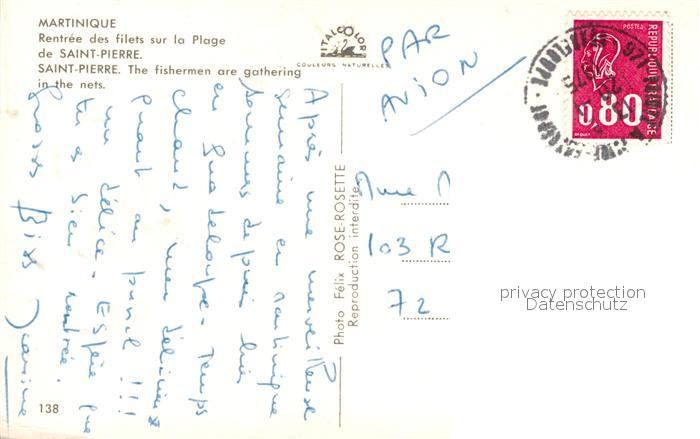 MARTINIQUE
Rentrée des filets sur la Plage
de SAINT-PIERRE.
SAINT-PIERRE. The fishermen are gathering
in the nets.
ITALCOLOR
COULEURS NATURELLES
PAR
AVION
POSTES
REPUBLIQUE FRANCAISE
0,80
Après une merveilleuse
semaine en Martinique
sommes depuis hier
en Guadeloupe. Temps
chaud, mer délicieuse
quant au punch !!!
un délice. Espère que
tu es bien rentrée.
Grosses Bises
Photo Félix ROSE-ROSETTE
Reproduction interdite.
103 R
72
privacy protection
Datenschutz
138